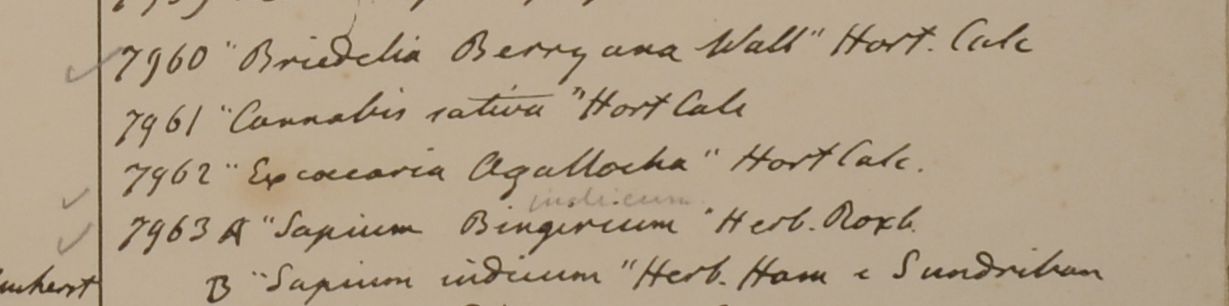 7960 "Briedelia Berryana Wall" Hort. Calc
7961 "Cannabis sativa" Hort Calc
7962 "Excoecaria Agallocha" Hort Calc.
indicum
7963 A "Sapium Bingerium" Herb. Roxb.
B "Sapium indicum" Herb. Ham e Sundriban